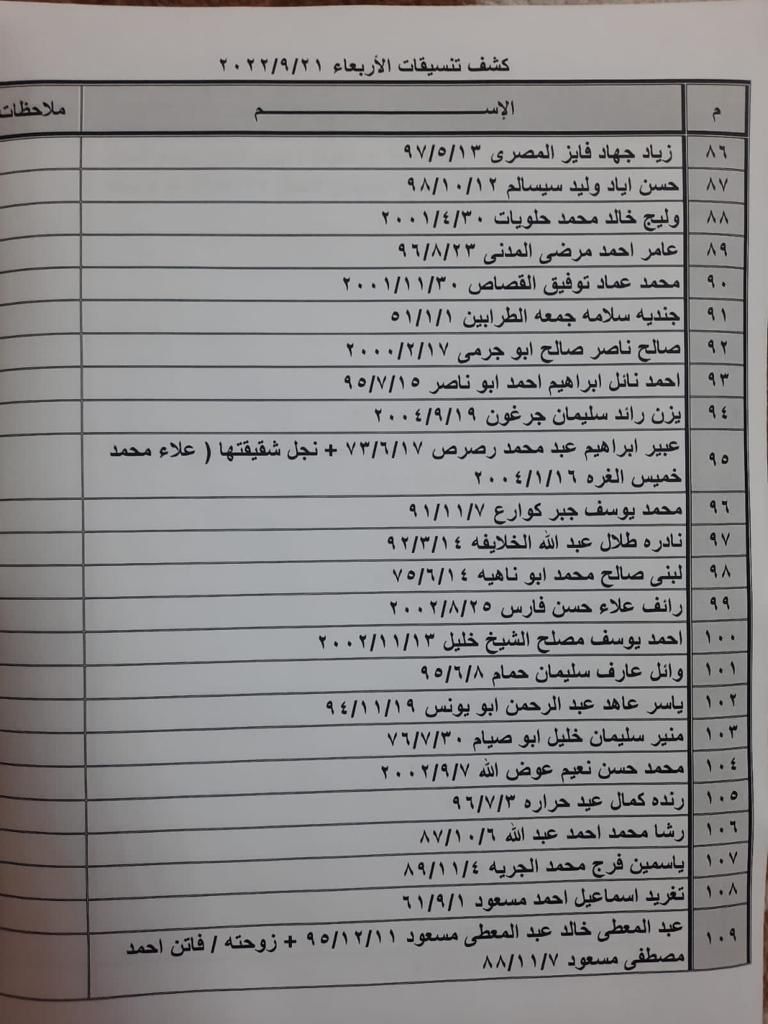 كشف تنسيقات الأربعاء ٢٠٢٢/٩/٢١
م الإســـــــــم ملاحظات
٨٦ زياد جهاد فايز المصرى ٩٧/٥/١٣
٨٧ حسن اياد وليد سيسالم ٩٨/١٠/١٢
٨٨ وليج خالد محمد حلويات ٢٠٠١/٤/٣٠
٨٩ عامر احمد مرضى المدنى ٩٦/٨/٢٣
٩٠ محمد عماد توفيق القصاص ٢٠٠١/١١/٣٠
٩١ جنديه سلامه جمعه الطرابين ٥١/١/١
٩٢ صالح ناصر صالح ابو جرمى ٢٠٠٠/٢/١٧
٩٣ احمد نائل ابراهيم احمد ابو ناصر ٩٥/٧/١٥
٩٤ يزن رائد سليمان جرغون ٢٠٠٤/٩/١٩
٩٥ عبير ابراهيم عبد محمد رصرص ٧٣/٦/١٧ + نجل شقيقتها ( علاء محمد
خميس الغره ٢٠٠٤/١/١٦
٩٦ محمد يوسف جبر كوارع ٩١/١١/٧
٩٧ نادره طلال عبد الله الخلايفه ٩٢/٣/١٤
٩٨ لبنى صالح محمد ابو ناهيه ٧٥/٦/١٤
٩٩ رائف علاء حسن فارس ٢٠٠٢/٨/٢٥
١٠٠ احمد يوسف مصلح الشيخ خليل ٢٠٠٢/١١/١٣
١٠١ وائل عارف سليمان حمام ٩٥/٦/٨
١٠٢ ياسر عاهد عبد الرحمن ابو يونس ٩٤/١١/١٩
١٠٣ منير سليمان خليل ابو صيام ٧٦/٧/٣٠
١٠٤ محمد حسن نعيم عوض الله ٢٠٠٢/٩/٧
١٠٥ رنده كمال عيد حراره ٩٦/٧/٣
١٠٦ رشا محمد احمد عبد الله ٨٧/١٠/٦
١٠٧ ياسمين فرج محمد الجريه ٨٩/١١/٤
١٠٨ تغريد اسماعيل احمد مسعود ٦١/٩/١
١٠٩ عبد المعطى خالد عبد المعطى مسعود ٩٥/١٢/١١ + زوحته / فاتن احمد
مصطفى مسعود ٨٨/١١/٧